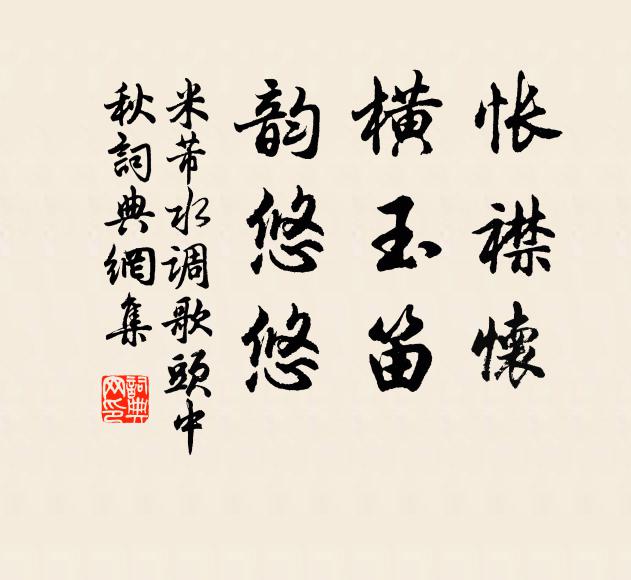 怅襟怀
横玉笛
韵悠悠
米芾水调歌頭中
秋詞典網集
詞典网印